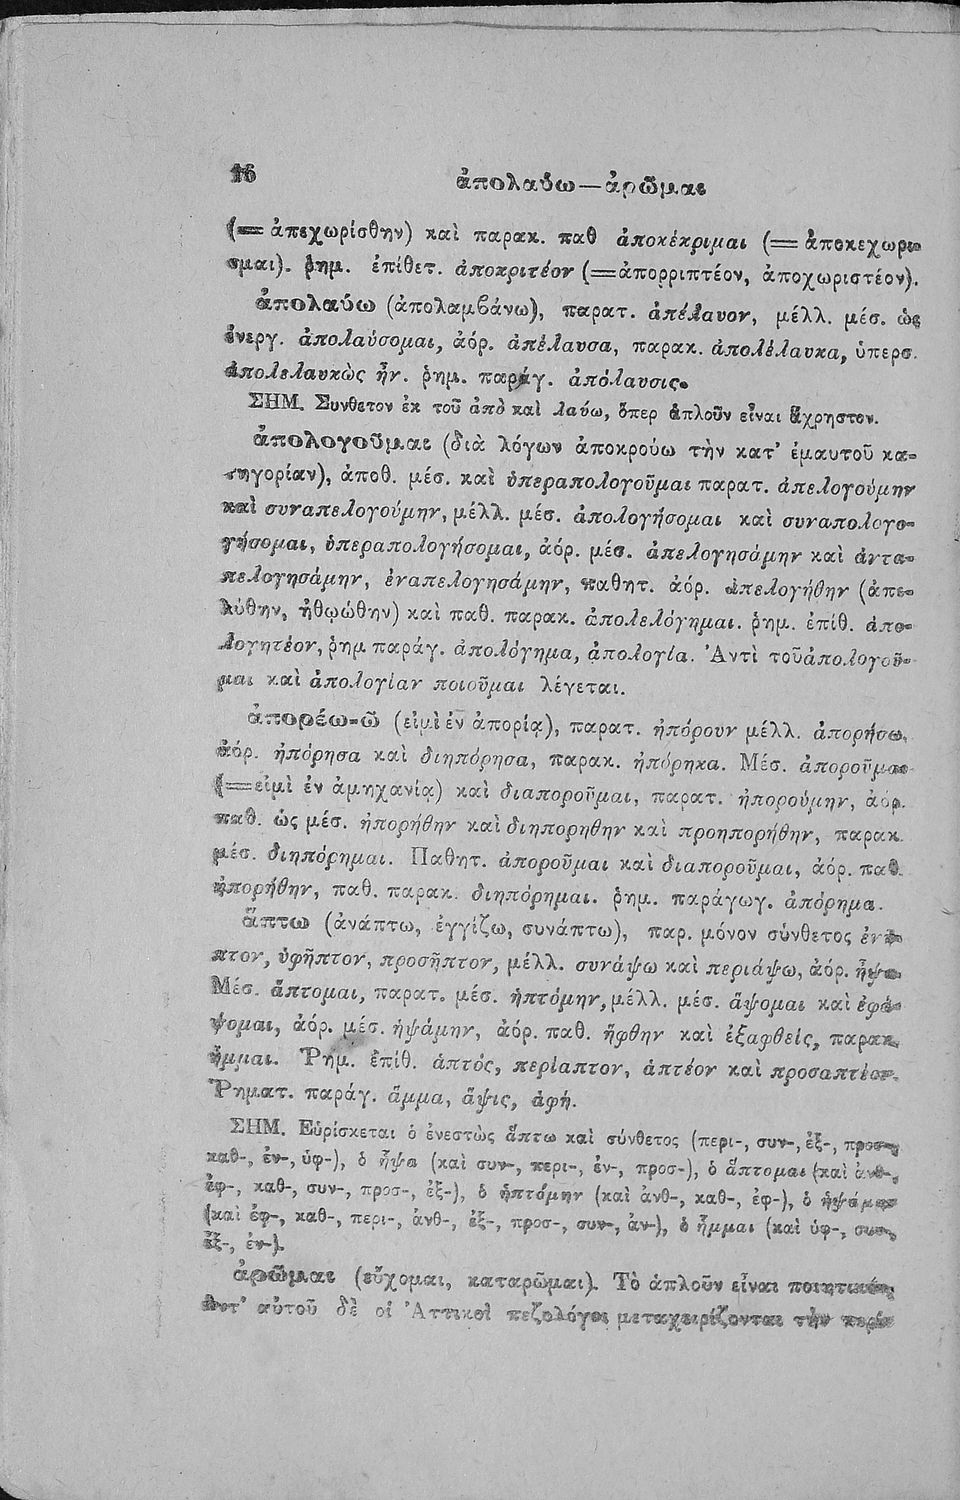 16
ἀπολαύω—ἀρῶμαι
(=ἀπεχωρίσθην) καὶ παρακ. παθ ἀποκέκριμαι (=ἀποκεχωρι-
σμαι). ῥημ. ἐπίθετ. ἀποκριτέον (=ἀπορριπτέον, ἀποχωριστέον).
ἀπολαύω (ἀπολαμβάνω), παρατ. ἀπέλαυον, μέλλ. μέσ. ὡς
ἐνεργ. ἀπολαύσομαι, ἀόρ. ἀπέλαυσα, παρακ. ἀπολέλαυκα, ὑπερσ.
ἀπολελαυκὼς ἦν. ῥημ. παράγ. ἀπόλαυσις.
ΣΗΜ. Συνθετον ἐκ τοῦ ἀπὸ καὶ λαύω, ὅπερ ἁπλοῦν εἶναι ἄχρηστον.
ἀπολογοῦμαι (διὰ λόγων ἀποκρούω τὴν κατ' ἐμαυτοῦ κα-
τηγορίαν), ἀποθ. μέσ. καὶ ὑπεραπολογοῦμαι παρατ. ἀπελογούμην
καὶ συναπελογούμην, μέλλ. μέσ. ἀπολογήσομαι καὶ συναπολογο-
γήσομαι, ὑπεραπολογήσομαι, ἀόρ. μέσ. ἀπελογησάμην καὶ ἀντα-
πελογησάμην, ἐναπελογησάμην, παθητ. ἀόρ. ἀπελογήθην (ἀπε-
λύθην, ἠθῳώθην) καὶ παθ. παρακ. ἀπολελόγημαι. ῥημ. ἐπίθ. ἀπο-
λογητέον, ῥημ παράγ. ἀπολόγημα, ἀπολογία. Ἀντὶ τοῦ ἀπολογοῦ-
μαι καὶ ἀπολογίαν ποιοῦμαι λέγεται.
ἀπορέω-ῶ (εἰμὶ ἐν ἀπορίᾳ), παρατ. ἠπόρουν μέλλ. ἀπορήσω,
ἀόρ. ἠπόρησα καὶ διηπόρησα, παρακ. ἠπόρηκα. Μέσ. ἀποροῦμαι
(=εἰμὶ ἐν ἀμηχανίᾳ) καὶ διαποροῦμαι, παρατ. ἠπορούμην, ἀόρ.
παθ. ὡς μέσ. ἠπορήθην καὶ διηπορηθην καὶ προηπορήθην, παρακ.
μέσ. διηπόρημαι. Παθητ. ἀποροῦμαι καὶ διαποροῦμαι, ἀόρ. παθ.
ἠπορήθην, παθ. παρακ. διηπόρημαι. ῥημ. παράγωγ. ἀπόρημα.
ἅπτω (ἀνάπτω, ἐγγίζω, συνάπτω), παρ. μόνον σύνθετος ἐνῆ-
πτον, ὑφῆπτον, προσῆπτον, μέλλ. συνάψω καὶ περιάψω, ἀόρ. ἧψα.
Μέσ. ἅπτομαι, παρατ. μέσ. ἡπτόμην, μέλλ. μέσ. ἅψομαι καὶ ἐφά-
ψομαι, ἀόρ. μέσ. ἡψάμην, ἀόρ. παθ. ἥφθην καὶ ἐξαφθείς, παρακ.
ἧμμαι. Ῥημ. ἐπίθ. ἁπτός, περίαπτον, ἁπτέον καὶ προσαπτέον.
Ῥηματ. παράγ. ἅμμα, ἅψις, ἁφή.
ΣΗΜ. Εὑρίσκεται ὁ ἐνεστὼς ἅπτω καὶ σύνθετος (περι-, συν-, ἐξ-, προσ-,
καθ-, ἐν-, ὑφ-), ὁ ἧψα (καὶ συν-, περι-, ἐν-, προσ-), ὁ ἅπτομαι (καὶ ἀνθ-,
ἐφ-, καθ-, συν-, προσ-, ἐξ-), ὁ ἡπτόμην (καὶ ἀνθ-, καθ-, ἐφ-), ὁ ἡψάμην
(καὶ ἐφ-, καθ-, περι-, ἀνθ-, ἐξ-, προσ-, συν-, ἀν-), ὁ ἧμμαι (καὶ ὑφ-, συν-,
ἐξ-, ἐν-).
ἀρῶμαι (εὔχομαι, καταρῶμαι). Τὸ ἁπλοῦν εἶναι ποιητικόν,
ἀντ' αὐτοῦ δὲ οἱ Ἀττικοὶ πεζολόγοι μεταχειρίζονται τὴν περί-